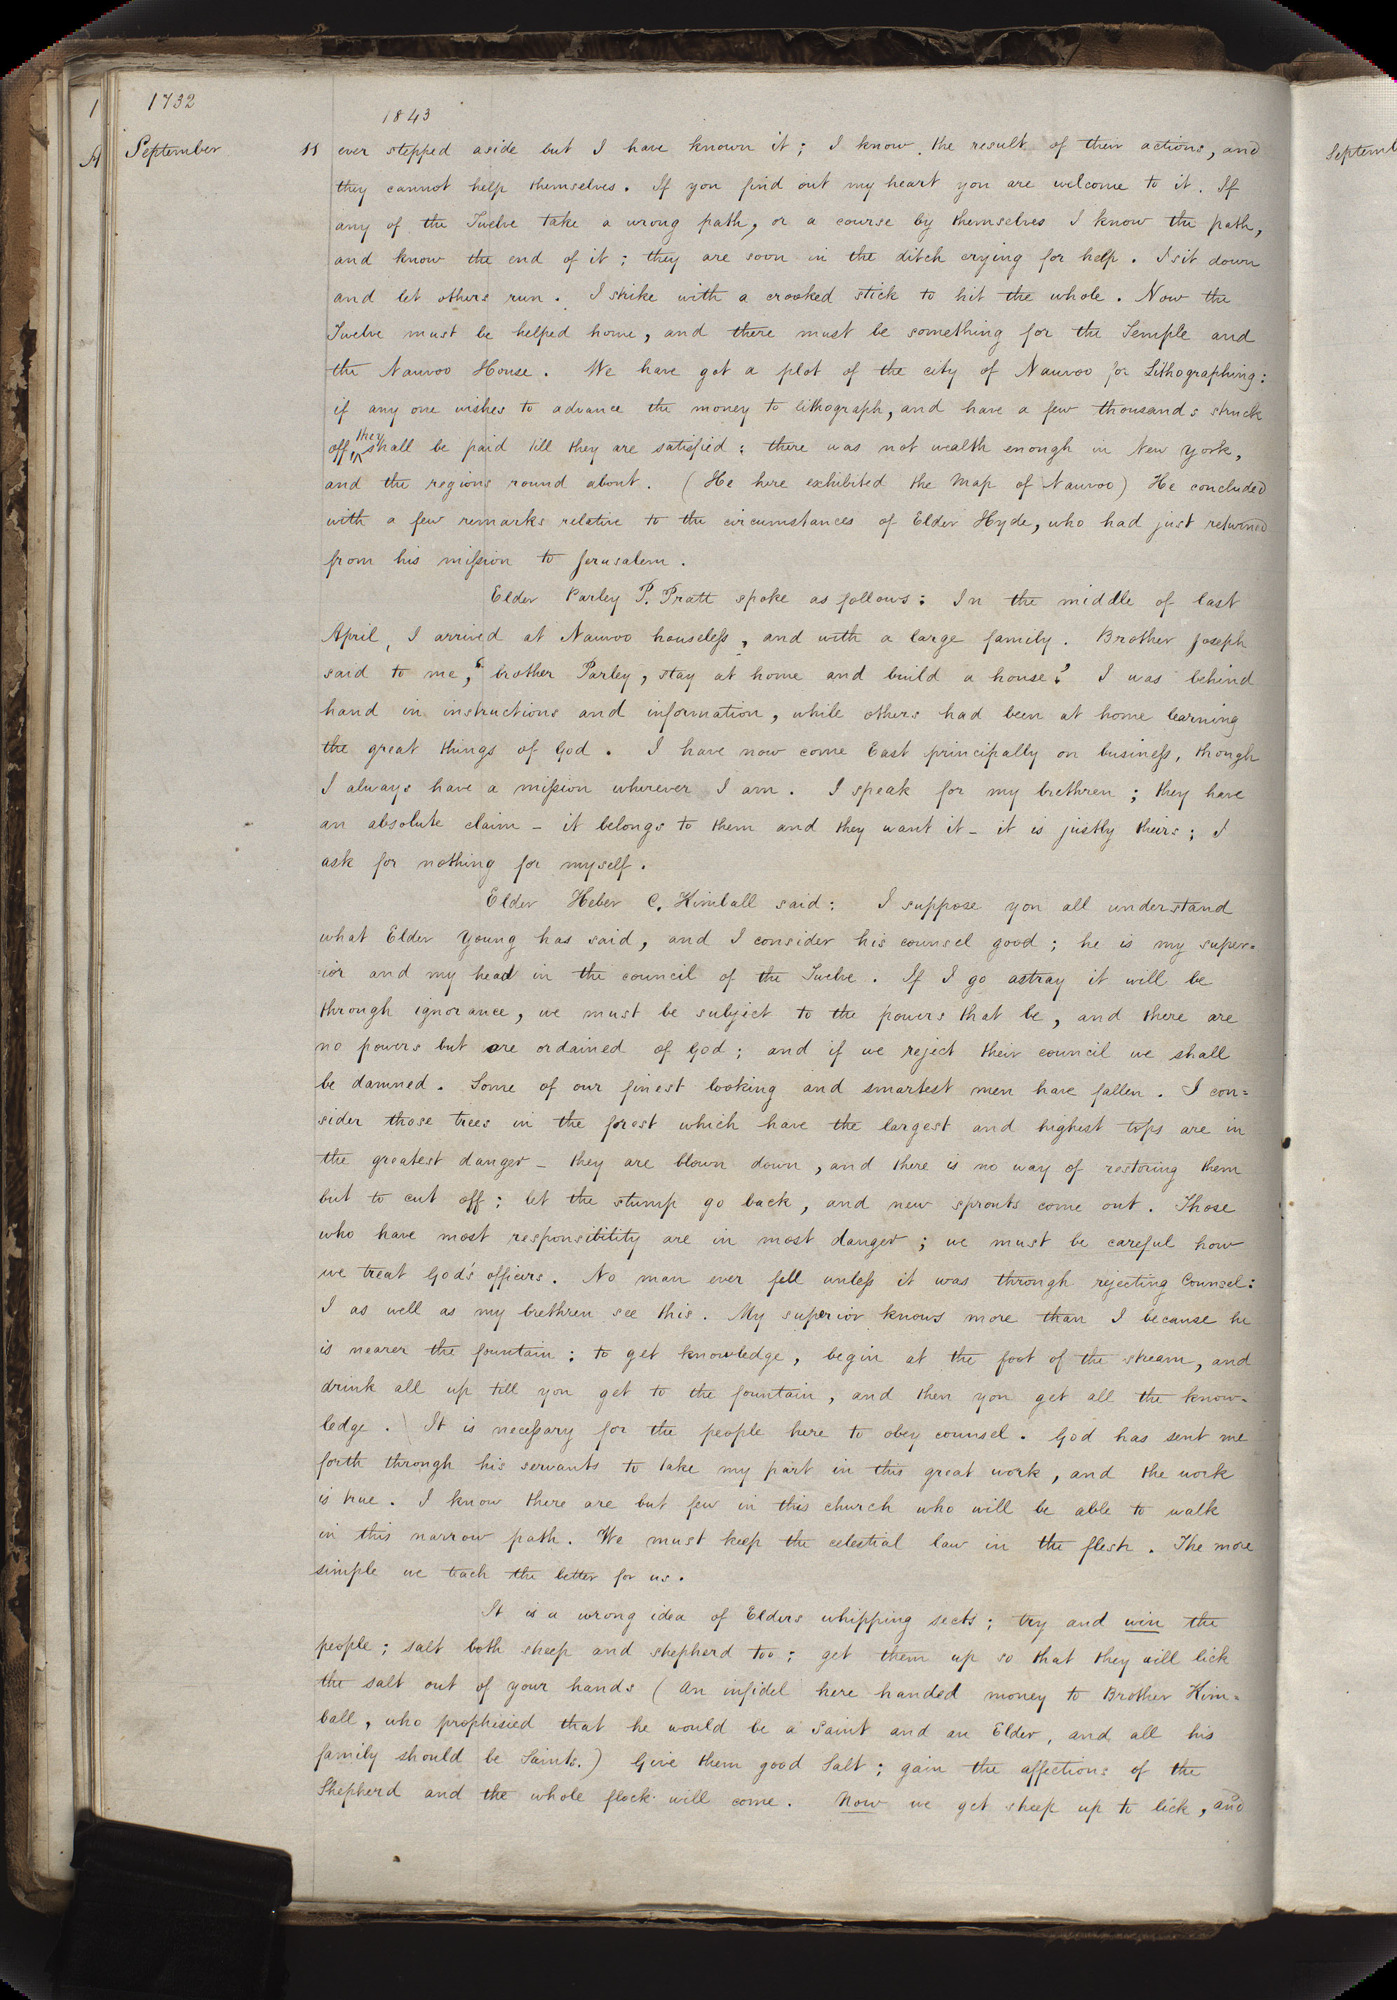 1732
1843
September 11 ever stepped aside but I have known it; I know the result of their actions, and
they cannot help themselves. If you find out my heart you are welcome to it. If
any of the Twelve take a wrong path, or a course by themselves I know the path,
and know the end of it; they are soon in the ditch crying for help. I sit down
and let others run. I strike with a crooked stick to hit the whole. Now the
Twelve must be helped home, and there must be something for the Temple and
the Nauvoo House. We have got a plot of the city of Nauvoo for Lithographing:
if any one wishes to advance the money to lithograph, and have a few thousands struck
off, they shall be paid till they are satisfied: there was not wealth enough in New York,
and the regions round about. (He here exhibited the Map of Nauvoo) He concluded
with a few remarks relative to the circumstances of Elder Hyde, who had just returned
from his mission to Jerusalem.
Elder Parley P. Pratt spoke as follows: In the middle of last
April, I arrived at Nauvoo houseless, and with a large family. Brother Joseph
said to me, "brother Parley, stay at home and build a house." I was behind
hand in instructions and information, while others had been at home learning
the great things of God. I have now come East principally on business, though
I always have a mission wherever I am. I speak for my brethren; they have
an absolute claim – it belongs to them and they want it – it is justly theirs; I
ask for nothing for myself.
Elder Heber C. Kimball said: I suppose you all understand
what Elder Young has said, and I consider his counsel good; he is my super=
=ior and my head in the council of the Twelve. If I go astray it will be
through ignorance, we must be subject to the powers that be, and there are
no powers but are ordained of God; and if we reject their council we shall
be damned. Some of our finest looking and smartest men have fallen. I con=
sider those trees in the forest which have the largest and highest tops are in
the greatest danger – they are blown down, and there is no way of restoring them
but to cut off: let the stump go back, and new sprouts come out. Those
who have most responsibility are in most danger; we must be careful how
we treat God's officers. No man ever fell unless it was through rejecting Counsel:
I as well as my brethren see this. My superior knows more than I because he
is nearer the fountain: to get knowledge, begin at the foot of the stream, and
drink all up till you get to the fountain, and then you get all the know-
ledge. It is necessary for the people here to obey counsel. God has sent me
forth through his servants to take my part in this great work, and the work
is true. I know there are but few in this church who will be able to walk
in this narrow path. We must keep the celestial law in the flesh. The more
simple we teach the better for us.
It is a wrong idea of Elders whipping sects; try and win the
people; salt both sheep and shepherd too; get them up so that they will lick
the salt out of your hands (An infidel here handed money to Brother Kim=
ball, who prophisied that he would be a Saint and an Elder, and all his
family should be Saints.) Give them good Salt; gain the affections of the
Shepherd and the whole flock will come. Now we get sheep up to lick, and
Septemb